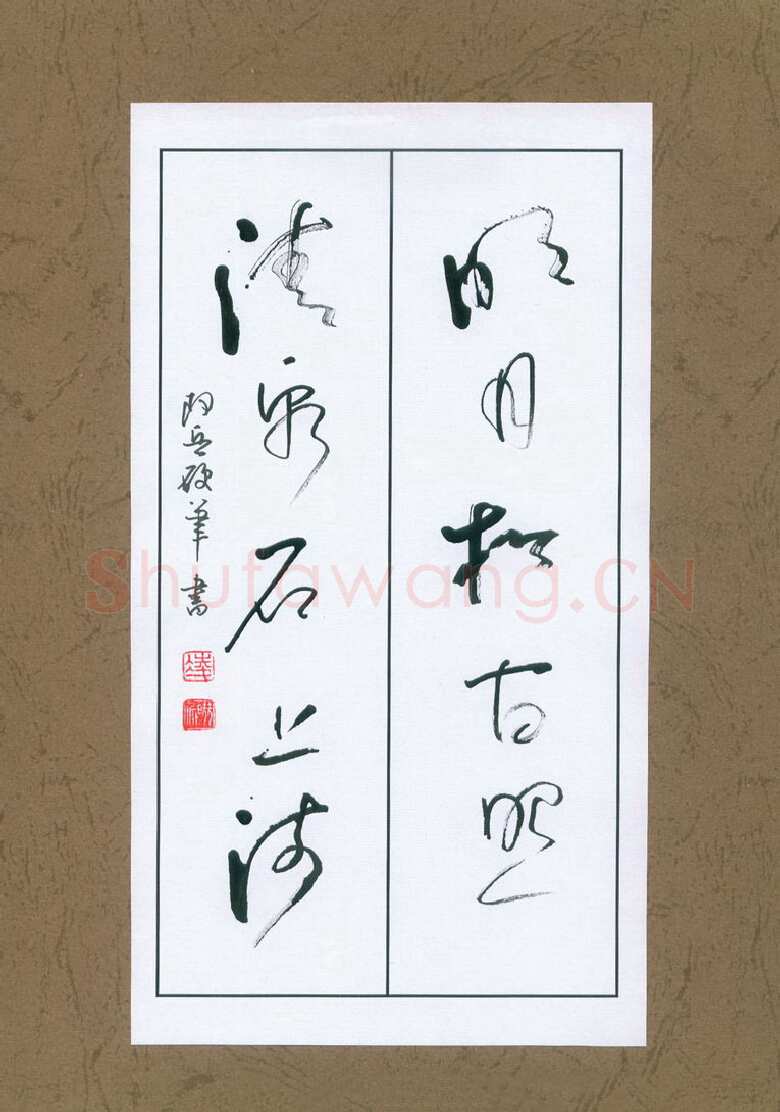 明月松间照
清泉石上流
硬筆書
Shufawang.CN